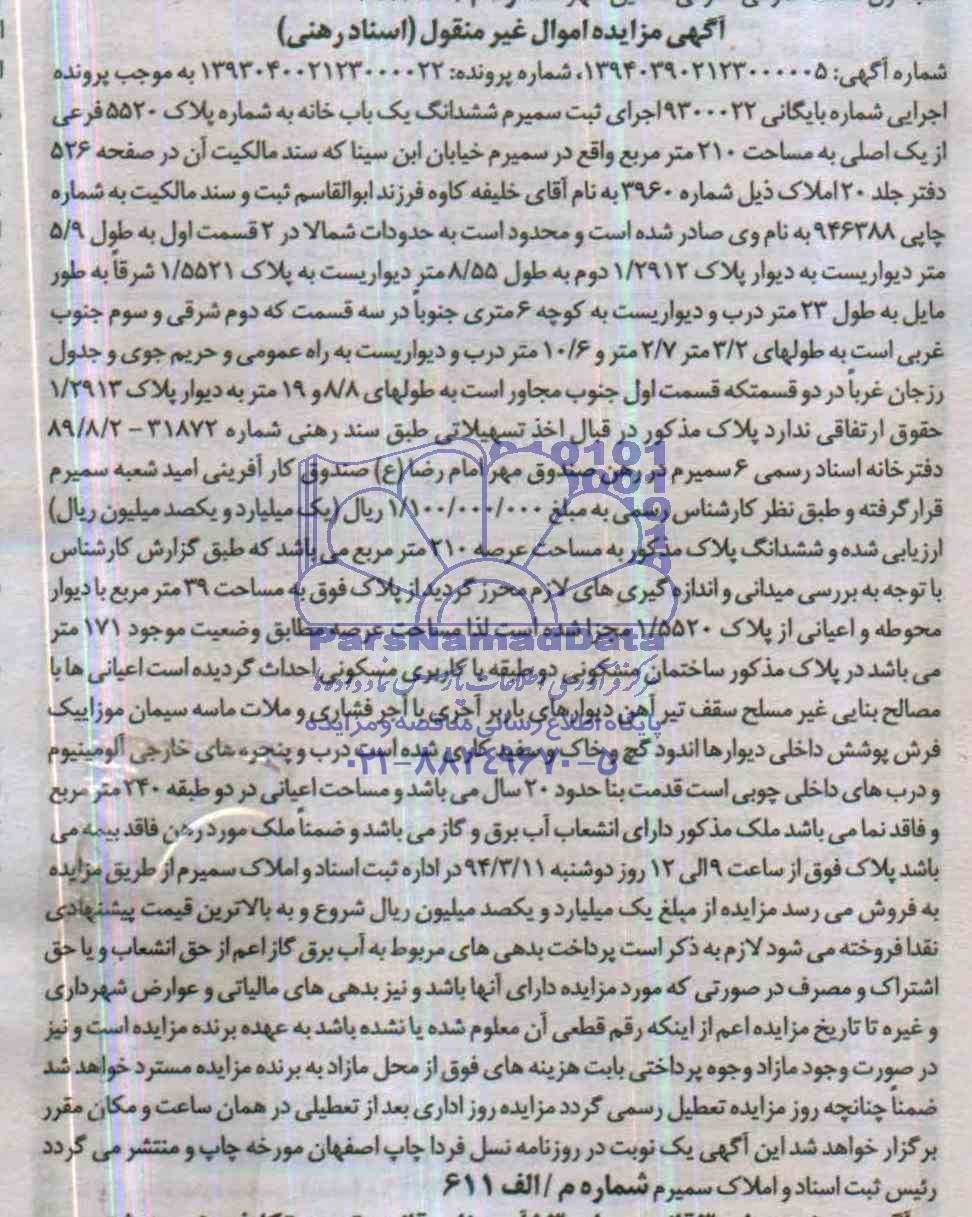 آگهی مزایده اموال غیر منقول (اسناد رهنی)
شماره آگهی: ۱۳۹۴۰۳۹۰۲۱۲۳۰۰۰۰۰۵، شماره پرونده: ۱۳۹۳۰۴۰۰۲۱۲۳۰۰۰۰۲۲ به موجب پرونده
اجرایی شماره بایگانی ۹۳۰۰۰۲۲ اجرای ثبت سمیرم ششدانگ یک باب خانه به شماره پلاک ۵۵۲۰ فرعی
از یک اصلی به مساحت ۲۱۰ متر مربع واقع در سمیرم خیابان ابن سینا که سند مالکیت آن در صفحه ۵۲۶
دفتر جلد ۲۰ املاک ذیل شماره ۳۹۶۰ به نام آقای خلیفه کاوه فرزند ابوالقاسم ثبت و سند مالکیت به شماره
چاپی ۹۴۶۳۸۸ به نام وی صادر شده است و محدود است به حدودات شمالا در ۲ قسمت اول به طول ۵/۹
متر دیواریست به دیوار پلاک ۱/۲۹۱۲ دوم به طول ۸/۵۵ متر دیواریست به پلاک ۱/۵۵۲۱ شرقاً به طور
مایل به طول ۲۳ متر درب و دیواریست به کوچه ۶ متری جنوباً در سه قسمت که دوم شرقی و سوم جنوب
غربی است به طولهای ۳/۲ متر ۲/۷ متر و ۱۰/۶ متر درب و دیواریست به راه عمومی و حریم جوی و جدول
رزجان غرباً در دو قسمتکه قسمت اول جنوب مجاور است به طولهای ۸/۸ و ۱۹ متر به دیوار پلاک ۱/۲۹۱۳
حقوق ارتفاقی ندارد پلاک مذکور در قبال اخذ تسهیلاتی طبق سند رهنی شماره ۳۱۸۷۲ - ۸۹/۸/۲
دفترخانه اسناد رسمی ۶ سمیرم در رهن صندوق مهر امام رضا (ع) صندوق کار آفرینی امید شعبه سمیرم
قرار گرفته و طبق نظر کارشناس رسمی به مبلغ ۱/۱۰۰/۰۰۰/۰۰۰ ریال (یک میلیارد و یکصد میلیون ریال)
ارزیابی شده و ششدانگ پلاک مذکور به مساحت عرصه ۲۱۰ متر مربع می باشد که طبق گزارش کارشناس
با توجه به بررسی میدانی و اندازه گیری های لازم محرز گردید از پلاک فوق به مساحت ۳۹ متر مربع با دیوار
محوطه و اعیانی از پلاک ۱/۵۵۲۰ مجزا شده است لذا مساحت عرصه مطابق وضعیت موجود ۱۷۱ متر
می باشد در پلاک مذکور ساختمان مسکونی دو طبقه با کاربری مسکونی احداث گردیده است اعیانی ها با
مصالح بنایی غیر مسلح سقف تیر آهن دیوارهای باربر آجری با آجر فشاری و ملات ماسه سیمان موزاییک
فرش پوشش داخلی دیوارها اندود گچ و خاک و سفید کاری شده است درب و پنجره های خارجی آلومینیوم
و درب های داخلی چوبی است قدمت بنا حدود ۲۰ سال می باشد و مساحت اعیانی در دو طبقه ۲۴۰ متر مربع
و فاقد نما می باشد ملک مذکور دارای انشعاب آب برق و گاز می باشد و ضمناً ملک مورد رهن فاقد بیمه می
باشد پلاک فوق از ساعت ۹ الی ۱۲ روز دوشنبه ۹۴/۳/۱۱ در اداره ثبت اسناد و املاک سمیرم از طریق مزایده
به فروش می رسد مزایده از مبلغ یک میلیارد و یکصد میلیون ریال شروع و به بالاترین قیمت پیشنهادی
نقدا فروخته می شود لازم به ذکر است پرداخت بدهی های مربوط به آب برق گاز اعم از حق انشعاب و یا حق
اشتراک و مصرف در صورتی که مورد مزایده دارای آنها باشد و نیز بدهی های مالیاتی و عوارض شهرداری
و غیره تا تاریخ مزایده اعم از اینکه رقم قطعی آن معلوم شده یا نشده باشد به عهده برنده مزایده است و نیز
در صورت وجود مازاد وجوه پرداختی بابت هزینه های فوق از محل مازاد به برنده مزایده مسترد خواهد شد
ضمناً چنانچه روز مزایده تعطیل رسمی گردد مزایده روز اداری بعد از تعطیلی در همان ساعت و مکان مقرر
برگزار خواهد شد این آگهی یک نوبت در روزنامه نسل فردا چاپ اصفهان مورخه چاپ و منتشر می گردد
رئیس ثبت اسناد و املاک سمیرم شماره م / الف ۶۱۱
ParsNamadData
پایگاه اطلاع رسانی مناقصه و مزایده
۰۲۱-۸۸۳۴۹۶۷۰-۵